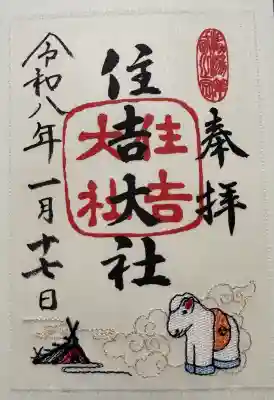 奉拝
住吉大社
住吉
大社
令和八年一月十七日